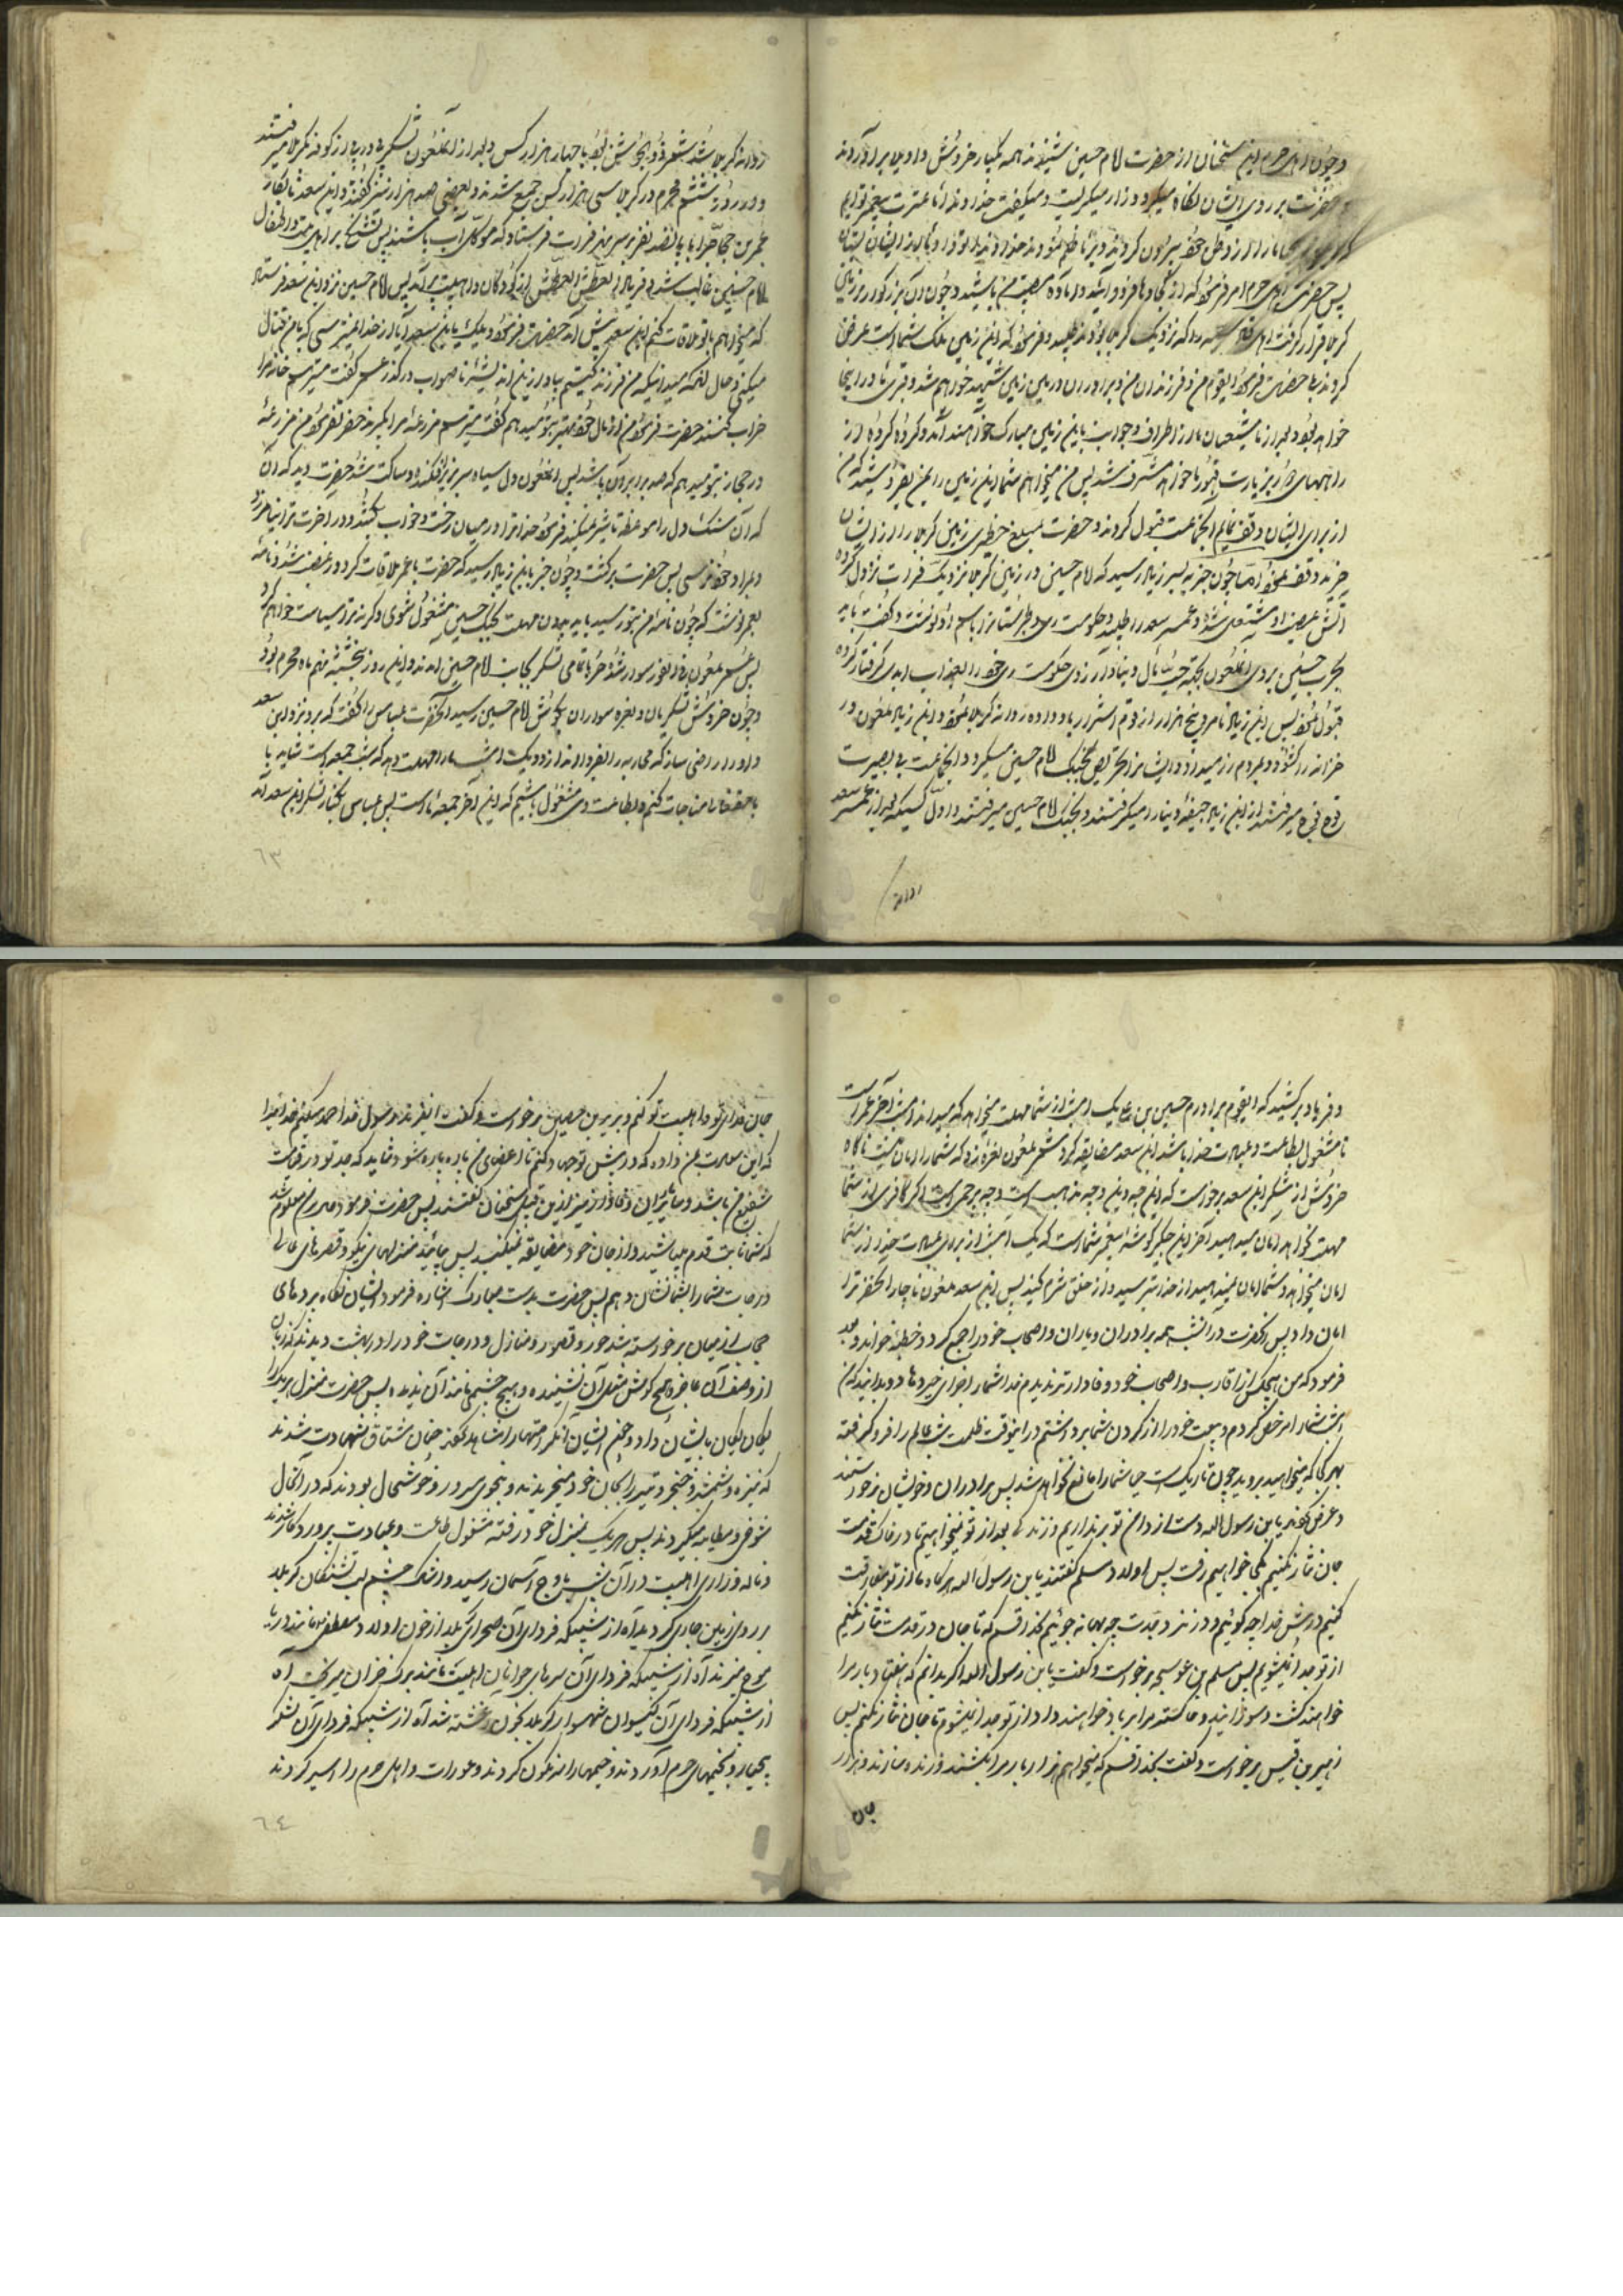 و چون اهل حرم این سخنان از حضرت امام حسین شنیدند همه یکبار خروش واویلا برآوردند
حضرت بر روی ایشان نگاه میکرد و زار میگریست و میگفت خداوندا ما عترت پیغمبر توایم
ما را از وطن خود بیرون کردند و بر ما ظلم نمودند خداوندا تو داد ما از ایشان بستان
پس حضرت اهل حرم امر فرمود که از کجاوها فرود آئید و آماده مصیبت من باشید و چون آن بزرگوار در زمین
کربلا قرار گرفت اهل که نزدیک کربلا بودند طلبید و فرمود که این زمین ملک شماست عرض
کردند بلی حضرت فرمود ایقوم من و فرزندان من و برادران در این زمین شهید خواهم شد و قبر ما در اینجا
خواهد بود و بعد از ما شیعیان ما از اطراف و جوانب باین زمین مبارک خواهند آمد و گروه گروه از
راههای دور بزیارت قبور ما خواهند مشرف شد پس من میخواهم شما این زمین را بمن بفروشید که من
از برای ایشان وقف نمایم آنجماعت قبول کردند و حضرت بمبلغ خطیری زمین کربلا را از ایشان
خرید و وقف نمود اما چون خبر به پسر زیاد رسید که امام حسین در زمین کربلا نزدیک فرات نزول کرده
آتش غضب او مشتعل شد و عمر سعد را طلبید و حکومت ری و طبرستانرا باسم او نوشت و گفت باید
بحرب حسین بروی آنملعون بجهة حب مال دنیا و آرزوی حکومت ری خود را بعذاب ابدی گرفتار کرده
قبول نمود پس ابن زیاد نامرد پنج هزار از قوم اشرار باو داده روانه کربلا نمود و ابن زیاد ملعون در
خزانه را گشوده و بمردم زر میداد و ایشانرا تحریص بجنگ امام حسین میکرد و آنجماعت بی بصیرت
فوج فوج میرفتند از ابن زیاد جیفه دنیا را میگرفتند و بجنگ امام حسین میرفتند و اول کسیکه بعد از عمر سعد
روانه
روانه کربلا شد شمر ذی الجوشن بود با چهار هزار کس و بعد از آنملعون لشکر پی در پی از کوفه بکربلا میرفتند
و در روز ششم محرم در کربلا سی هزار کس جمع شدند و بعضی صد هزار نیز گفتند و ابن سعد نابکار
عمر بن حجاج را با پانصد نفر بر سر نهر فرات فرستاد که موکل آب باشند پس تشنگی بر اهل بیت و اطفال
امام حسین غالب شد و فریاد العطش العطش از کودکان و اهلبیت برآمد پس امام حسین نزد ابن سعد فرستاد
که میخواهم با تو ملاقات کنم ابن سعد پیش آمد حضرت فرمود ویلک یا ابن سعد آیا از خدا نمیترسی که با من قتال
میکنی و حال آنکه میدانیکه من فرزند کیستم بیا و از این اندیشه ناصواب درگذر عمر گفت میترسم خانه مرا
خراب کنند حضرت فرمود من از مال خود بهتر بتو میدهم گفت میترسم مزرعه مرا بگیرند حضرت فرمود من مزرعه
در حجاز بتو میدهم که صد برابر آن باشد پس آنملعون دل سیاه سر بزیر افکنده و ساکت شد حضرت دید که آن
که آن سنگ دل را موعظه تاثیر نمیکند فرمود خدا ترا در میان رخت و خواب بکشد و در آخرت ترا نیامرزد
و بمراد خود نرسی پس حضرت برگشت و چون خبر بابن زیاد رسید که حضرت با عمر ملاقات کرد در غضب شد و نامه
بعمر نوشت که چون نامه من بتو رسید باید بدون مهلت بجنگ حسین مشغول شوی و گرنه ترا سیاست خواهم کرد
پس عمر ملعون فی الفور سوار شد و خود با تمامی لشکر بجانب امام حسین آمدند و این روز پنجشنبه نهم ماه محرم بود
و چون خروش لشکریان و نعره سواران بگوش امام حسین رسید آنحضرت بعباس را گفت که برو نزد ابن سعد
و او را راضی ساز که محاربه را بفردا اندازد و یک امشب ما را مهلت دهد که شب جمعه است شاید با
با حقتعالی مناجات کنم و بطاعت وی مشغول باشیم که این آخر جمعه ما است پس عباس بکنار لشکر ابن سعد آمد
٦٣
و فریاد برکشید که ایقوم برادرم حسین بن علی یک امشب از شما مهلت میخواهد که میداند امشب آخر عمر است
تا مشغول بطاعت و عبادت خدا باشد ابن سعد مضایقه کرد شمر ملعون نعره زد که شما را امان نیست ناگاه
خروش از لشکر ابن سعد برخواست که این چه دین و چه مذهب است و چه بیرحمی است اگر کافری از شما
مهلت خواهد امان میدهید آخر این جگر گوشه پیغمبر شماست که یک امشب از برای عبادت خدا از شما
امان میخواهد و شما امان نمیدهید از خدا بترسید و از خلق شرم کنید پس ابن سعد ملعون ناچار آنحضرترا
امان داد پس آنحضرت در آنشب همه برادران و یاران و اصحاب خود را جمع کرد و خطبه خواند و بعد
فرمود که من هیچکس از اقارب و اصحاب خود وفادارتر ندیدم خدا شما را جزای خیر دهاد و بدانید که من
امشب شما را مرخص کردم و بیعت خود را از گردن شما برداشتم در اینوقت ظلمت شب عالم را فرو گرفته
بهر کجا که میخواهید بروید چون تاریک است حیا شما را مانع نخواهد شد پس برادران و خویشان برخواستند
و عرض کردند یا بن رسول الله دست از دامن تو برنداریم و زندگی بعد از تو نمیخواهیم تا در خاک قدمت
جان نثار نکنیم بکجا خواهیم رفت پس اولاد مسلم گفتند یا بن رسول الله هرگاه ما از تو مفارقت
کنیم در پیش خدا چه گوئیم و در نزد جدت چه بهانه جوئیم بخدا قسم که تا جان در قدمت نثار نکنیم
از تو جدا نمیشویم پس مسلم بن عوسجه برخواست و گفت یا بن رسول الله اگر بدانم که هفتاد بار مرا
خواهند کشت و سوزانید و خاکستر مرا بر باد خواهند داد از تو جدا نمیشوم تا جان نثار نکنم پس
زهیر بن قیس برخواست و گفت بخدا قسم که میخواهم هزار بار مرا بکشند و زنده سازند و هزار
جان
جان فدای تو و اهلبیت تو کنم و بریر بن حصین برخواست و گفت ایفرزند رسول خدا حمد میکنم خدا را
که این سعادت بمن داده که در پیش تو جهاد کنم تا اعضای من پاره پاره شود و شاید که جد تو در قیامت
شفیع من باشد و سایر یاران وفادار نیز از این قبیل سخنان گفتند پس حضرت فرمود بر من معلوم شد
که شما ثابت قدم میباشید و از جان خود مضایقه نمیکنید پس بیائید منزلهای نیکو و قصرهای عالی
درجات شما را بشما نشان دهم پس حضرت بدست مبارک اشاره فرمود ایشان نگاه بردهای
حجاب از میان برخواسته شد حور و قصور و منازل و درجات خود را در بهشت دیدند که زبان
از وصف آن عاجز و هیچ گوش مثل آن نشنیده و هیچ چشمی مانند آن ندیده پس حضرت منزل هر یک را
یکان یکان بایشان داد و چون ایشان آنکرامتها را مشاهده کردند چنان مشتاق شهادت شدند
که نیزه و شمشیر و خنجر و تیر را بجان خود میخریدند و بنحوی سرور و خوشحال بودند که در آنحال
شوخی و مطایبه میکردند پس هر یک بمنزل خود رفته مشغول طاعت و عبادت پروردگار شدند
و ناله و زاری اهلبیت در آن شب باوج آسمان رسید و اشک چشم لب تشنگان کربلا
بر روی زمین جاری گردید آه از شبیکه فردای آن صحرای کربلا از خون اولاد مصطفی مانند دریا
موج میزند آه از شبیکه فردای آن سرهای جوانان اهلبیت مانند برگ خزان میریخت آه
از شبیکه فردای آن گیسوان شهسوار کربلا بخون آغشته شد آه از شبیکه فردای آن لشکر
بیحیا رو بخیمهای حرم آوردند و خیمها را سرنگون کردند و عورات و اهل حرم را اسیر کردند
٦٤